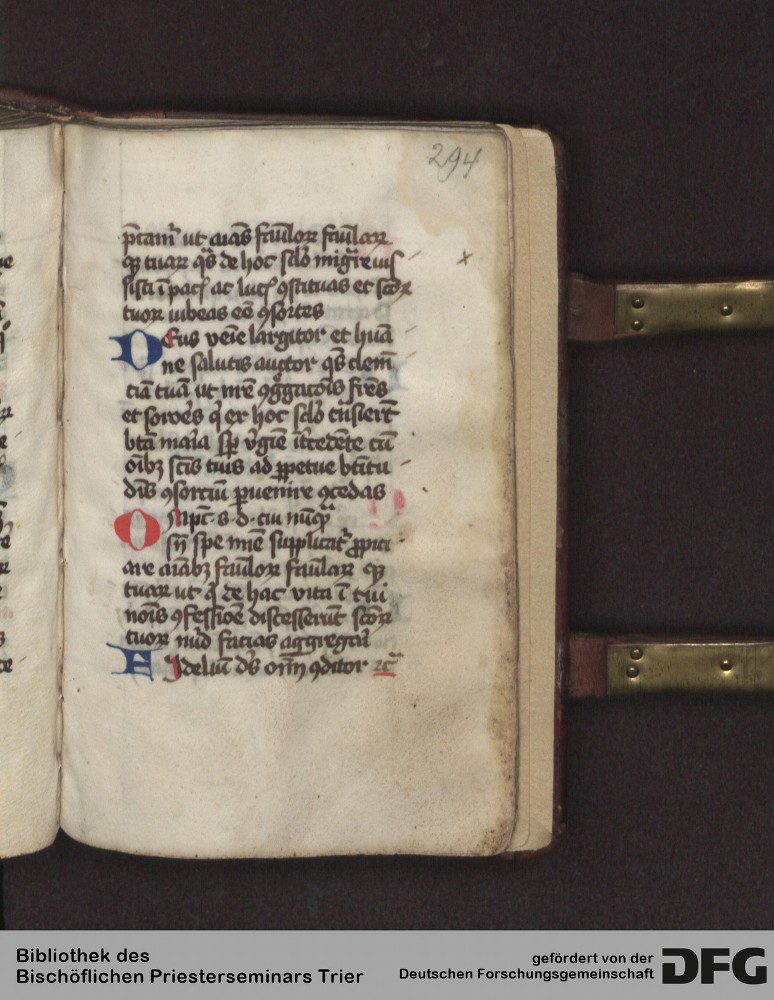 294
p̄camr̄ ut aīas fāulor̄ fāular̄
q̄ tuar̄ q̄s de hoc sc̄lo migrare iussisti
ī pac̄ ac luc̄ ꝯstituas et sc̄or̄
tuor̄ iubeas eē ꝯsortes
Deus venie largitor et hūa
ne salutis auctor q̄s clem̄
ciā tuā ut nr̄e ꝯgregatōis fr̄es
et sorores q̄ ex hoc sc̄lo tn̄sierūt
btā maria sp̄ v̓gīe īt̄cedēte cū
oībꝫ sc̄is tuis ad ꝑpetue btītu
dīs ꝯsorciū ꝑuenire ꝯcedas
Oīpt̄ s d cui nūq̄
sn̄ spe mīe supplicat̄ ꝓpici
are aīabꝫ fāulor̄ fāular̄ q̄
tuar̄ ut q̄ de hac vita ī tui
noīs ꝯfessiōe discesserūt sc̄or̄
tuor̄ nūo facias aggregari
Fideliū ds̄ oīm ꝯditor ⁊c̄
Bibliothek des
Bischöflichen Priesterseminars Trier
gefördert von der
Deutschen Forschungsgemeinschaft DFG